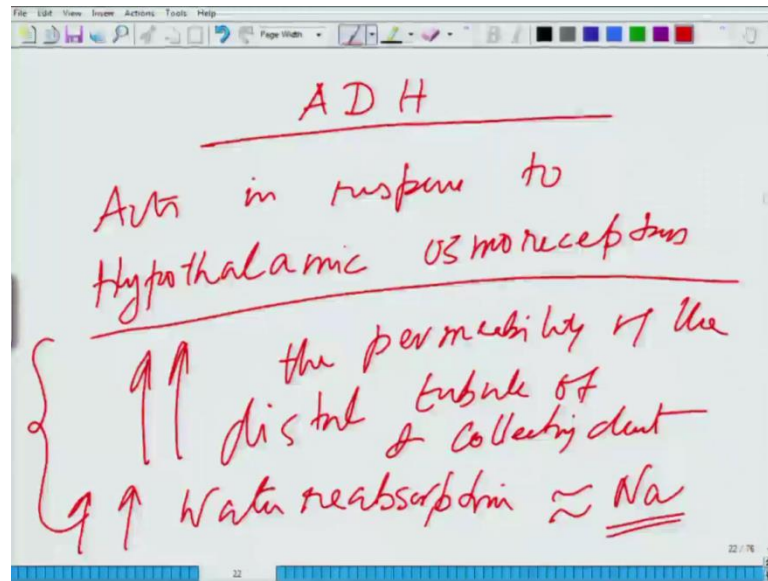 File Edit View Insert Actions Tools Help
Page Width
ADH
Acts in response to
Hypothalamic osmoreceptors
↑↑ the permeability of the
distal tubule of
& collecting duct
↑↑ Water reabsorption ≈ Na
22 / 76
22